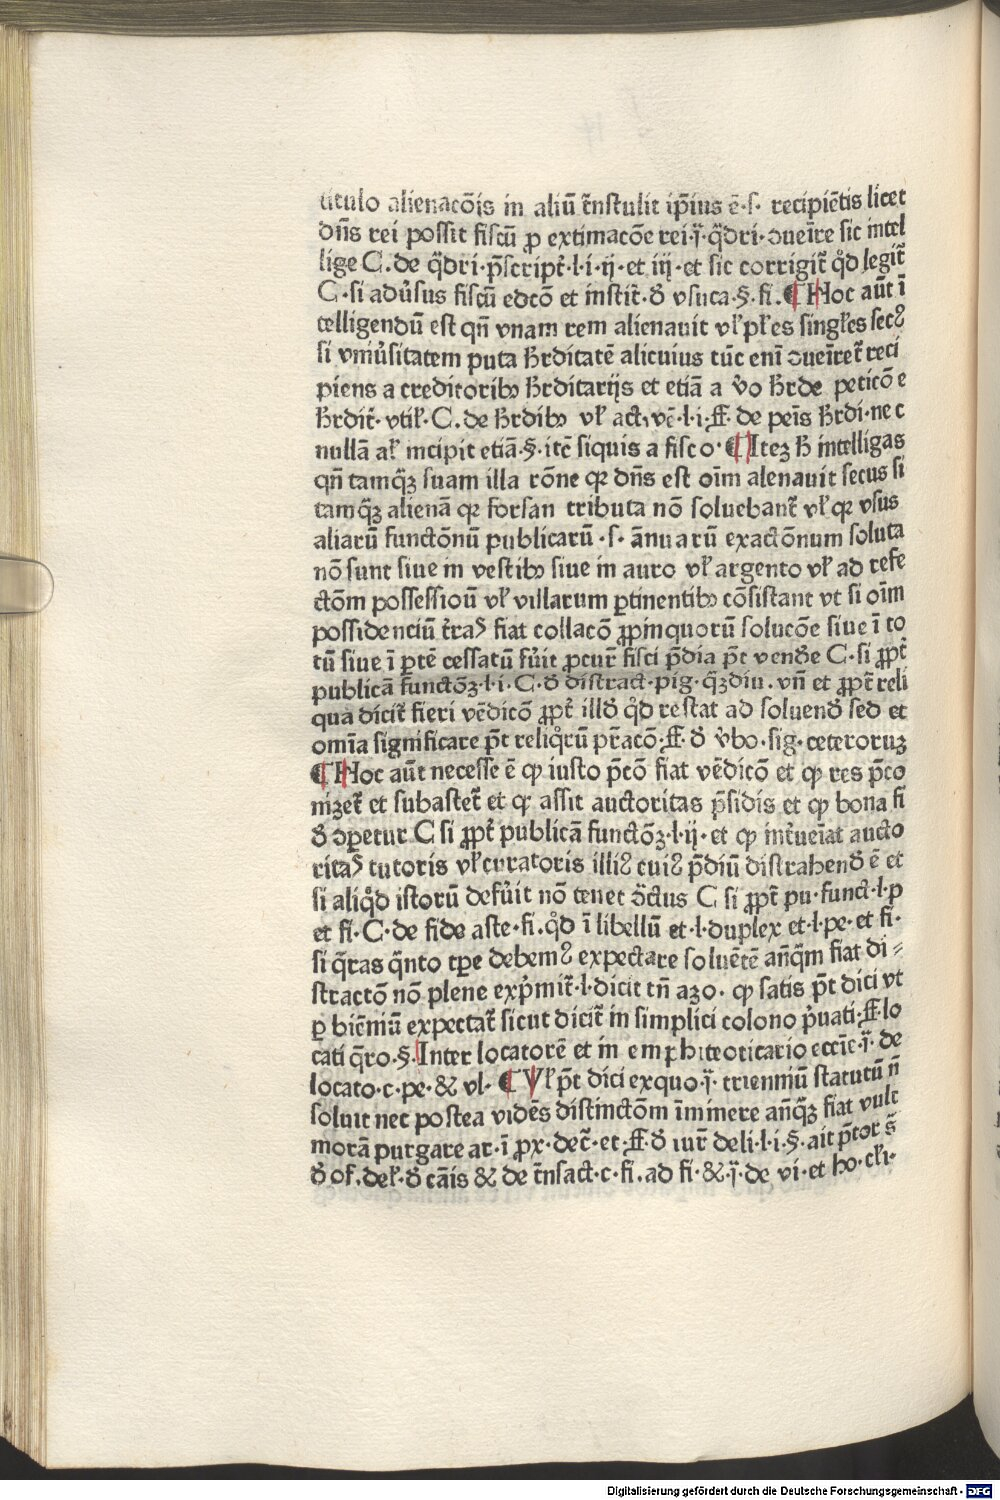 titulo alienacōis in aliū t̄nstulit ip̄ius ē·s· recipiētis licet
dn̄s rei possit fiscū ꝓ extimacōe rei·ī·q̄dri·ↄueīre sic intel
lige C.de q̄dri·p̄script̄·l·i·ij·et iij·et sic corrigit̄ qͦd legit̄
C·si adu̓sus fiscū edcō et instit̄·ð vsuca·§·fi.¶Hoc aūt ī
telligendū est qn̄ vnam rem alienauit vł płes singłes secꝰ
si vniu̓sitatem puta h̄rditatē alicuius tūc eni ↄueīret̄ reci
piens a creditoribꝫ h̄rditarijs et etiā a v̓o h̄rde peticōe
h̄rdit̄·vtił·C·de h̄rdibꝫ vł act·vē·l·i·ff·de peīs h̄rdi·nec
nullā ał incipit etiā·§·itē siquis a fisco·¶Iteꝫ h̄ intelligas
qn̄ tamq̄ꝫ suam illa rōne qꝛ dn̄s est oīm alenauit secus si
tamq̄ꝫ alienā qꝛ forsan tributa nō soluebant̄ vł qꝛ vsus
aliarū functōnū publicarū·s·ānuarū exactōnum soluta
nō sunt siue in vestibꝫ siue in auro vł argento vł ad refe
ctōm possessioū vł villarum ꝑtinentibꝫ cōsistant vt si oīm
possidenciū t̄ras fiat collacō ꝓpinquorū solucōe siue ī to
tū siue ī ꝑtē cessatū fu̓it ꝓcur̄ fisci p̄dia p̄t venðe C·si ꝓpt̄
publicā functōꝫ·l·i·C·ð distract·pig·q̄ꝫdiu.vn̄ et ꝓpt̄ reli
qua dicit̄ fieri vēdicō ꝓpt̄ illð qͦd restat ad soluenð sed et
omīa significare p̄t reliqͦrū pr̄acō·ff·ð v̓bo·sig·ceteroruꝫ
¶Hoc aūt necesse ē ꝙ iusto p̄cō fiat vēdicō et ꝙ res p̄co
nizet̄ et subastet̄ et qꝛ assit auctoritas p̄sidis et ꝙ bona fi
ð ↄꝑetur C si ꝓpt̄ publicā functōꝫ·l·ij·et ꝙ int̓ueīat aucto
ritas tutoris vł curatoris illiꝰ cuiꝰ p̄diū distrahenð ē et
si aliqͦd istorū defu̓it nō tenet ↄ̄ctus C si ꝓpt̄ pu·funct·l·p
et fi·C·de fide aste·fi.qͦd ī libellū et·l·duplex et·l·pe·et fi·
si q̄ras q̄nto tꝑe debemꝰ expectare soluētē an̄q̄m fiat di⸗
stractō nō plene exp̓mit̄·l·dicit tn̄ azo·ꝙ satis p̄t dici vt
ꝑ biēniū expectat̄ sicut dicit̄ in simplici colono p̓uati·ff·lo
cati q̄ro·§·Inter locatorē et in emphiteoticario eccīe·ī·de
locato·c·pe·& vl·¶Vł p̄t dici exquo·ī·trienniū statutū n̄
soluit nec postea vidēs distinctōm īminere an̄q̄ꝫ fiat vult
morā purgare ar·ī ꝓx·dec̄·et·ff·ð iur̄ deli·l·i·§·ait p̄tor s̄
ð of.deł·ð cāis & de t̄nsact·c·fi.ad fi·&·ī·de vi·et ho·cłi·
Digitalisierung gefördert durch die Deutsche Forschungsgemeinschaft - DFG